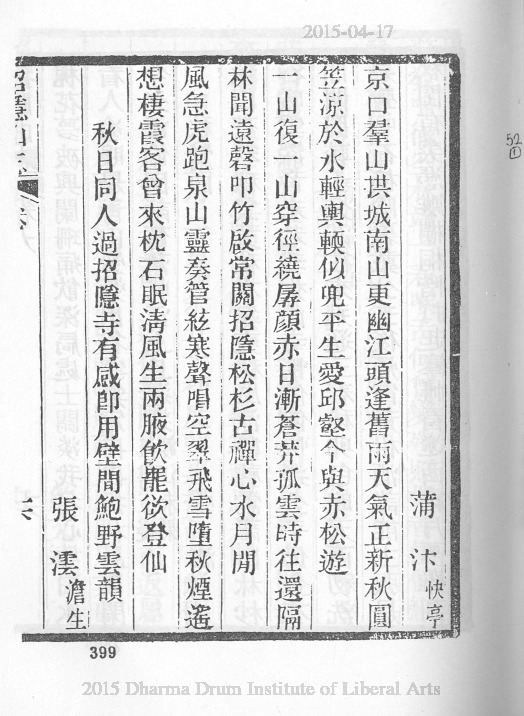 2015-04-17
52
①
蒲汴 快亭
京口羣山拱城南山更幽江頭逢舊雨天氣正新秋圓
笠涼於水輕輿輭似兜平生愛邱壑今與赤松遊
一山復一山穿徑繞孱顏赤日漸蒼莽孤雲時往還隔
林聞遠磬叩竹啟常關招隱松杉古禪心水月閒
風急虎跑泉山靈奏管絃寒聲唱空翠飛雪墮秋煙遙
想棲霞客曾來枕石眠淸風生兩腋飮罷欲登仙
秋日同人過招隱寺有感卽用壁間鮑野雲韻
張澐 澹生
399
2015 Dharma Drum Institute of Liberal Arts